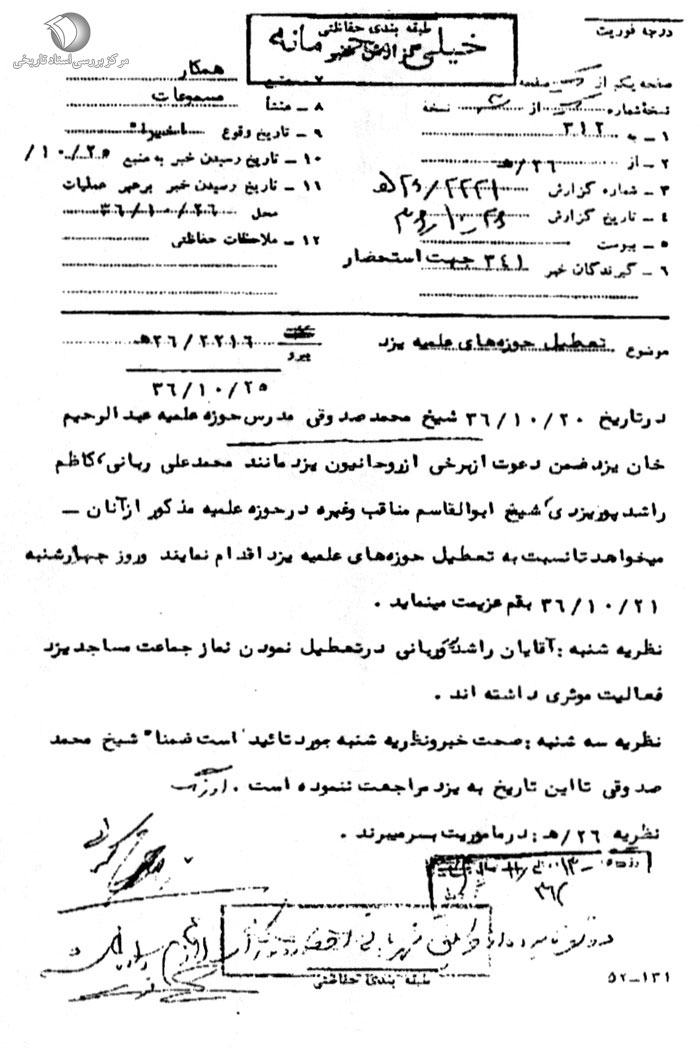 مرکز بررسی اسناد تاریخی
درجه فوریت
طبقه بندی حفاظتی
خیلی محرمانه
گزارش خبر
صفحه یک از یک صفحه
نسخه شماره از نسخه
۱ ـ به ۳۱۲
۲ ـ از ۲۶/ه‍
۳ ـ شماره گزارش ۲۶/۲۲۲۱ه‍
۴ ـ تاریخ گزارش
۵ ـ پیوست
۶ ـ گیرندگان خبر ۳۴۱ جهت استحضار
۷ ـ منبع همکار
۸ ـ منشأ مسموعات
۹ ـ تاریخ وقوع اخیراً
۱۰ ـ تاریخ رسیدن خبر به منبع ۱۰/۲۵/
۱۱ ـ تاریخ رسیدن خبر برهبر عملیات
محل ۳۶/۱۰/۲۶
۱۲ ـ ملاحظات حفاظتی
موضوع تعطیل حوزه‌های علمیه یزد
پیرو ۲۶/۲۲۱۶ه‍
۳۶/۱۰/۲۵
درتاریخ ۳۶/۱۰/۲۰ شیخ محمد صدوقی مدرس حوزه علمیه عبدالرحیم
خان یزد ضمن دعوت ازبرخی ازروحانیون یزد مانند محمدعلی ربانی، کاظم
راشد پوریزدی، شیخ ابوالقاسم مناقب وغیره درحوزه علمیه مذکور ازآنان ـ
میخواهد تانسبت به تعطیل حوزه‌های علمیه یزد اقدام نمایند وروز چهارشنبه
۳۶/۱۰/۲۱ بقم عزیمت مینماید .
نظریه شنبه : آقایان راشد وربانی درتعطیل نمودن نماز جماعت مساجد یزد
فعالیت موثری داشته اند .
نظریه سه شنبه : صحت خبرونظریه شنبه مورد تائید است ضمنا" شیخ محمد
صدوقی تااین تاریخ به یزد مراجعت ننموده است .
نظریه ۲۶/ه‍ : درماموریت بسرمیبرند .
طبقه بندی حفاظتی
۵۲ـ۱۳۱